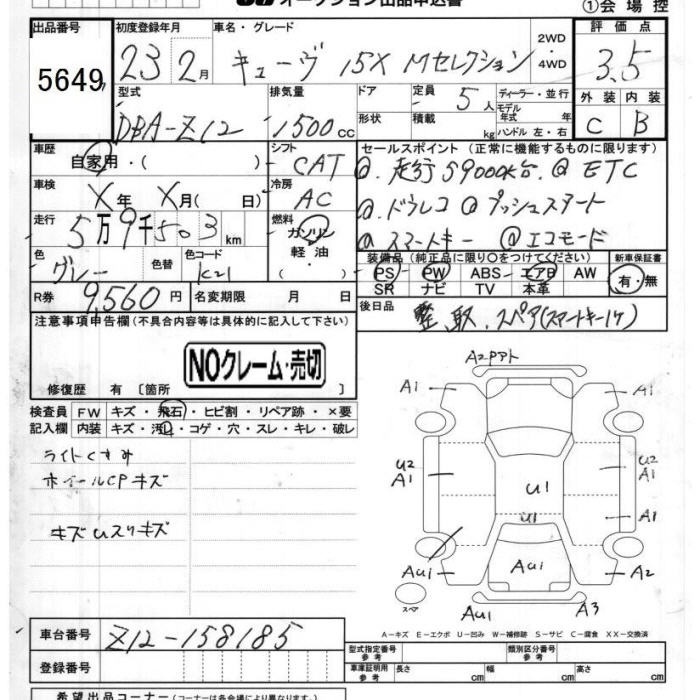 オークション出品申込書
①会場控
出品番号 5649
初度登録年月 23 2月
車名・グレード キューヴ 15X Mセレクション
2WD・4WD
評価点 3.5
外装 C 内装 B
型式 DBA-Z12
排気量 1500 cc
ドア 形状
定員 5人
積載 kg
ディーラー・並行
モデル年式 年
ハンドル 左・右
車歴 自家用・( )
シフト CAT
車検 X年 X月( 日)
冷房 AC
走行 5万9千503 km
燃料 ガソリン・軽油・
色 グレー
色替
色コード K21
R券 9,560円
名変期限 月 日
セールスポイント (正常に機能するものに限ります)
@.走行59000K台.@ETC
@.ドラレコ @プッシュスタート
@スマートキー @エコモード
装備品(純正品に限り○をつけてください)
PS PW ABS エアB AW
SR ナビ TV 本革
新車保証書 有・無
後日品 整.取.スペア(スマートキー1ケ)
注意事項申告欄(不具合内容等は具体的に記入して下さい)
NOクレーム・売切
修復歴 有 [箇所 ]
検査員記入欄
FW キズ・飛石・ヒビ割・リペア跡・×要
内装 キズ・汚・コゲ・穴・スレ・キレ・破レ
ライトくすみ
ホイールCPキズ
キズUスリキズ
A2Pアト
A1
A1
U2
A1
U2
A1
U1
A1
U1
AU1
AU1
A2
スペア
AU1
A3
A-キズ E-エクボ U-凹み W-補修跡 S-サビ C-腐食 XX-交換済
車台番号 Z12-158185
登録番号
型式指定番号 参考
類別区分番号 参考
車庫証明用 参考 長さ cm 幅 cm 高さ cm
希望出品コーナー(コーナーは各会場により異なります)